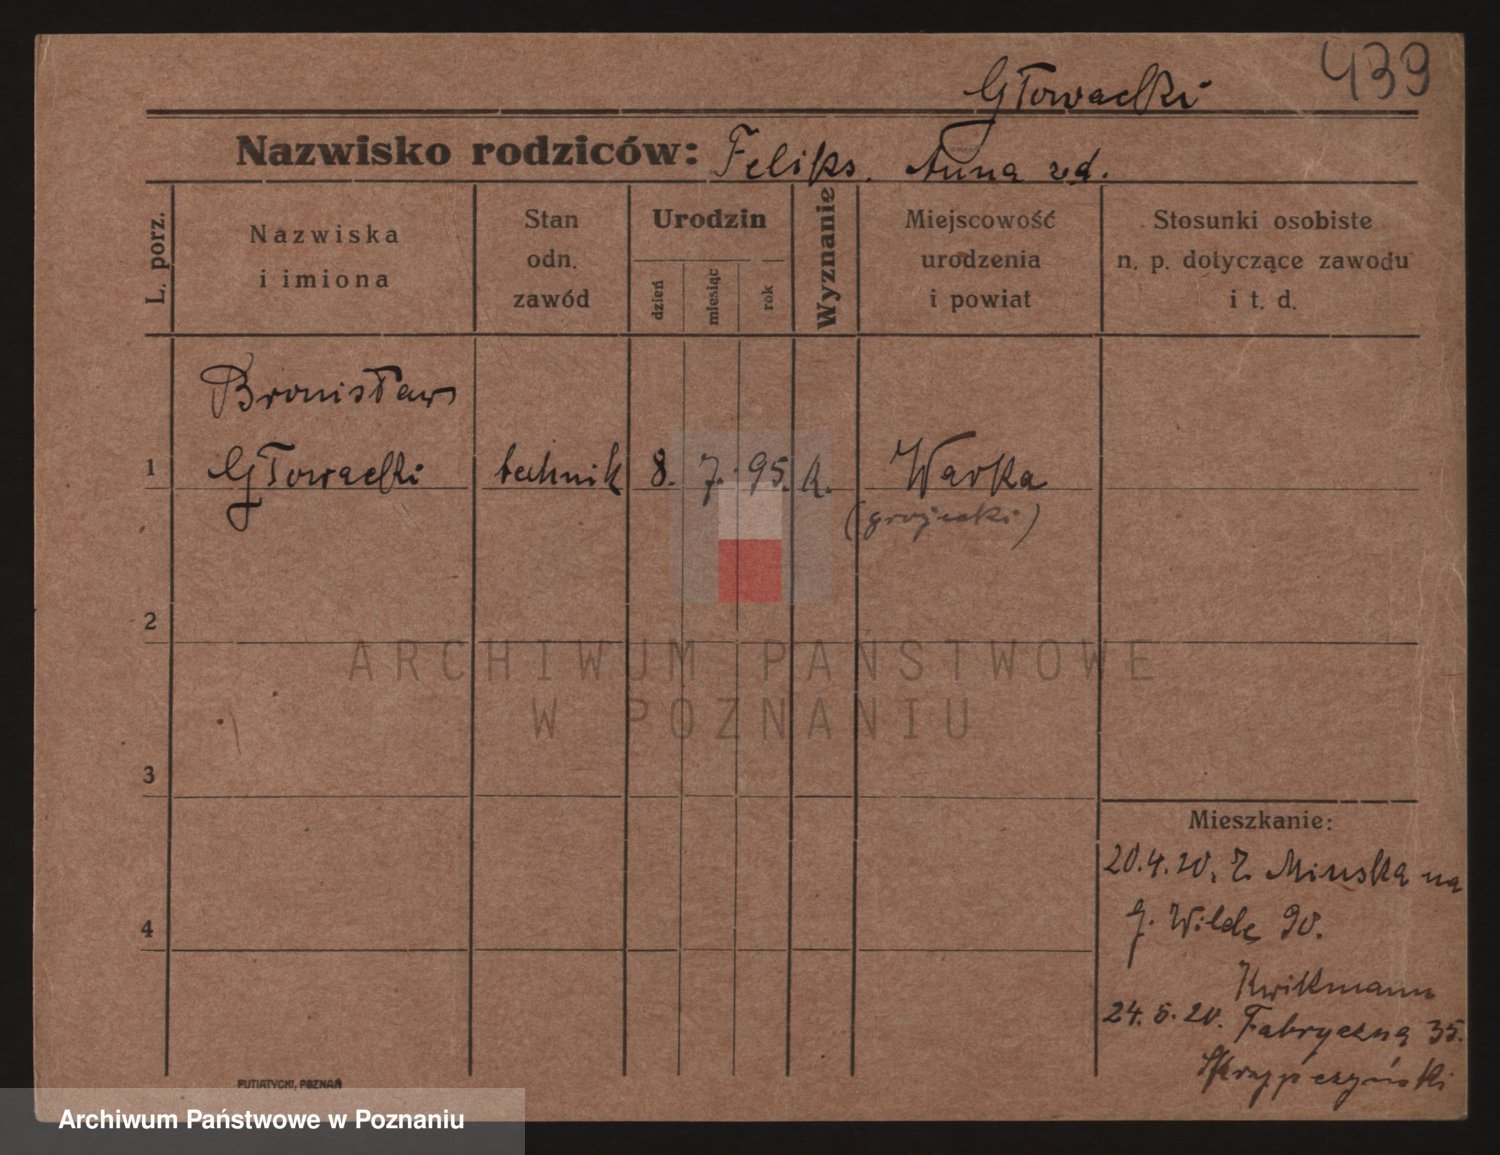 439
Głowacki
Nazwisko rodziców: Feliks. Anna zd.
L. porz.
Nazwiska
i imiona
Stan
odn.
zawód
Urodzin
dzień
miesiąc
rok
Wyznanie
Miejscowość
urodzenia
i powiat
Stosunki osobiste
n. p. dotyczące zawodu
i t. d.
Bronisław
1 Głowacki technik 8. 7. 95. k. Warka
(grójecki)
2
ARCHIWUM PAŃSTWOWE
W POZNANIU
3
4
Mieszkanie:
20.4.20. Z Mińska na
G. Wildę 90.
Kwikmann
24.6.20. Fabryczną 35.
PUTIATYCKI, POZNAŃ
Archiwum Państwowe w Poznaniu